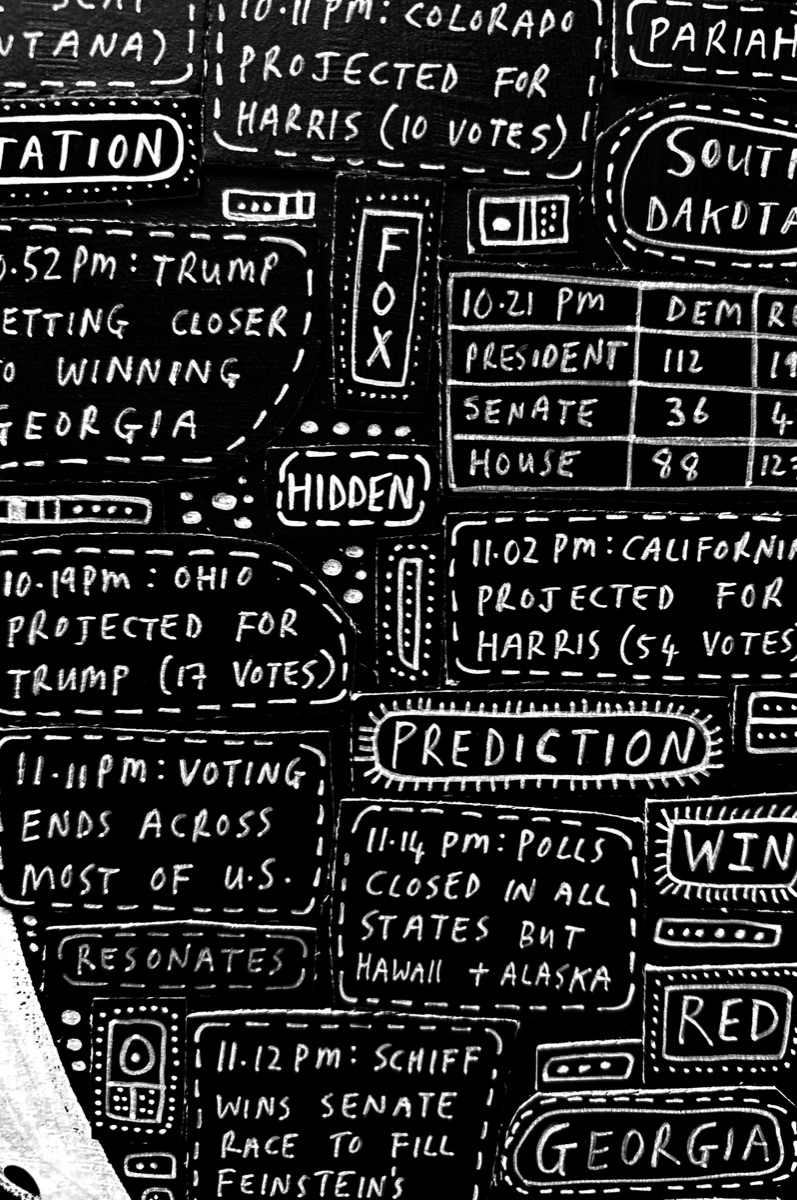 10.11 PM: COLORADO
PROJECTED FOR
HARRIS (10 VOTES)
PARIAH
SOUTH
DAKOTA
FOX
.52 PM: TRUMP
ETTING CLOSER
TO WINNING
GEORGIA
10.21 PM DEM
PRESIDENT 112
SENATE 36
HOUSE 88
HIDDEN
10.19 PM: OHIO
PROJECTED FOR
TRUMP (17 VOTES)
11.02 PM: CALIFORNIA
PROJECTED FOR
HARRIS (54 VOTES)
PREDICTION
11.11 PM: VOTING
ENDS ACROSS
MOST OF U.S.
11.14 PM: POLLS
CLOSED IN ALL
STATES BUT
HAWAII + ALASKA
WIN
RESONATES
RED
11.12 PM: SCHIFF
WINS SENATE
RACE TO FILL
FEINSTEIN'S
GEORGIA